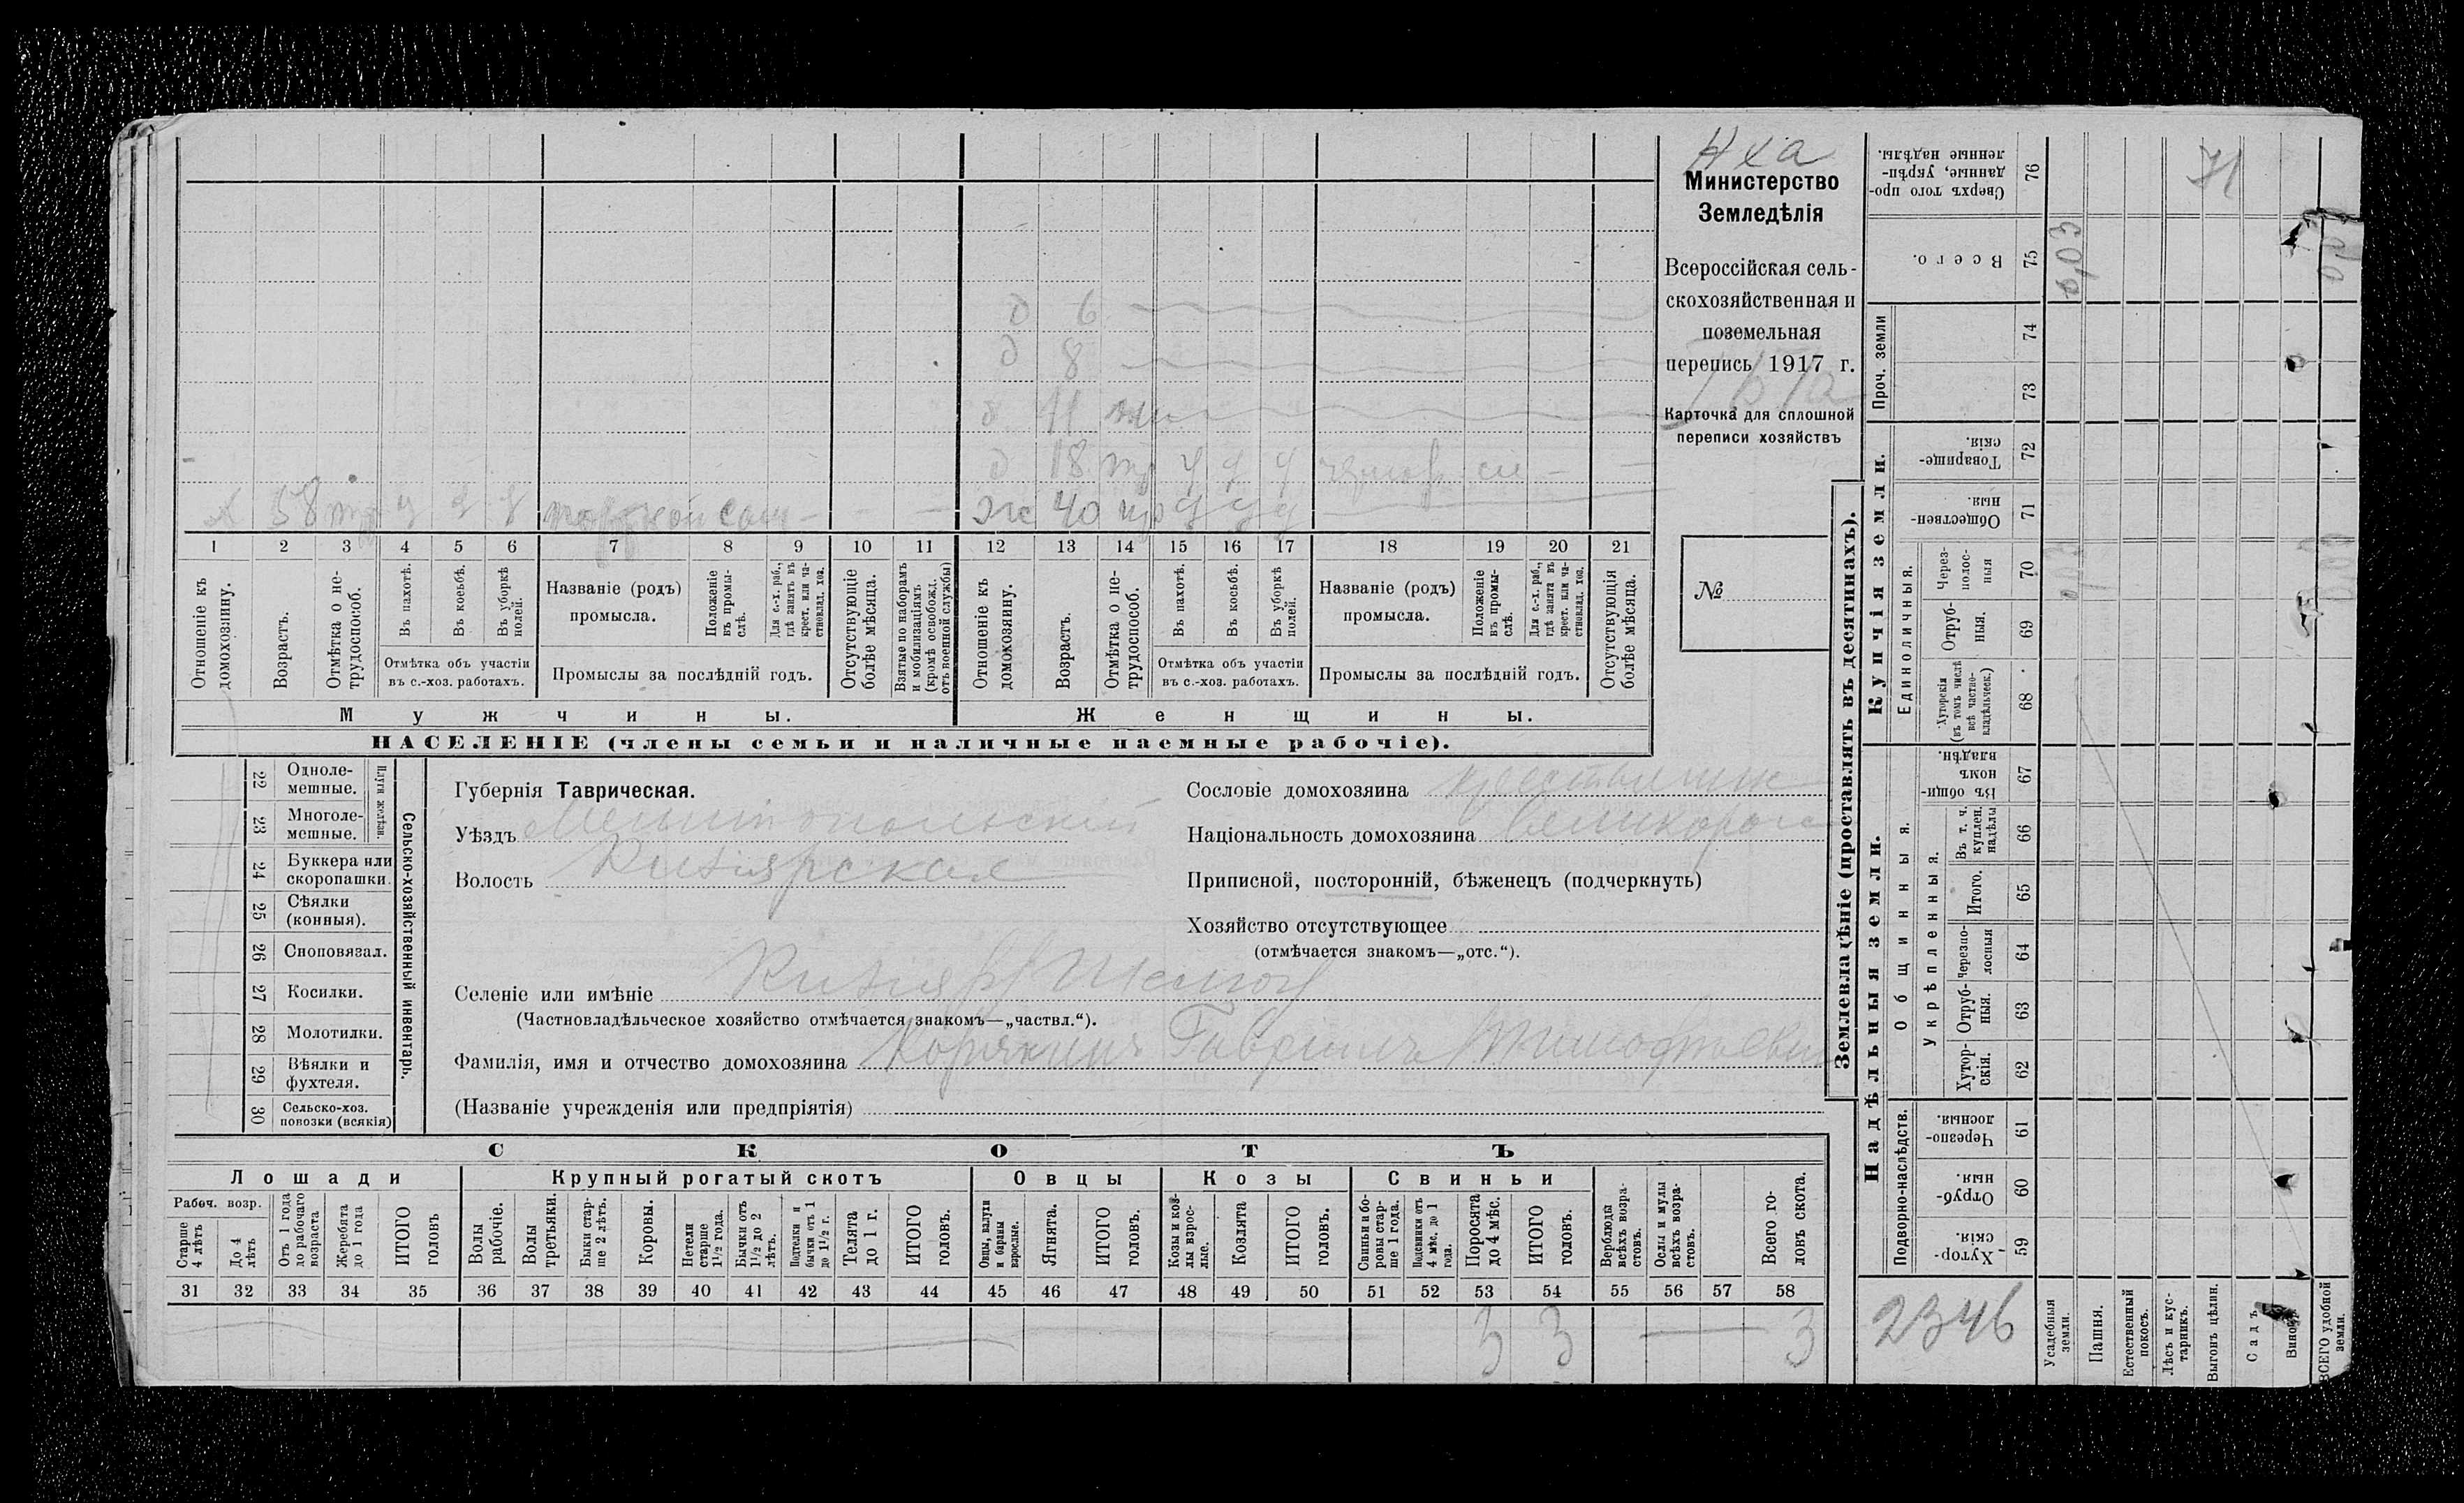 Нха
Министерство
Земледѣлія
Всероссійская сель-
скохозяйственная и
поземельная
перепись 1917 г.
Карточка для сплошной
переписи хозяйствъ
№
д 6
д 8
д 11
д 18 у у у
х 58 у у у
ж 40 у у у
1 2 3 4 5 6 7 8 9 10 11 12 13 14 15 16 17 18 19 20 21
Отношеніе къ домохозяину.
Возрастъ.
Отмѣтка о не-трудоспособ.
Въ пахотѣ.
Въ косьбѣ.
Въ уборкѣ полей.
Отмѣтка объ участіи
въ с.-хоз. работахъ.
Названіе (родъ)
промысла.
Положеніе въ промы-слѣ.
Для с.-х. раб., гдѣ занятъ въ крест. или ча-стновлад. хоз.
Промыслы за послѣдній годъ.
Отсутствующіе болѣе мѣсяца.
Взятые по наборамъ и мобилизаціямъ (кромѣ освобожд. отъ военной службы)
Отношеніе къ домохозяину.
Возрастъ.
Отмѣтка о не-трудоспособ.
Въ пахотѣ.
Въ косьбѣ.
Въ уборкѣ полей.
Отмѣтка объ участіи
въ с.-хоз. работахъ.
Названіе (родъ)
промысла.
Положеніе въ промы-слѣ.
Для с.-х. раб., гдѣ занята въ крест. или ча-стновлад. хоз.
Промыслы за послѣдній годъ.
Отсутствующія болѣе мѣсяца.
Мужчины.
Женщины.
НАСЕЛЕНІЕ (члены семьи и наличные наемные рабочіе).
22 Одноле-мешные.
23 Многоле-мешные.
Плуги желѣзн.
24 Буккера или скоропашки.
25 Сѣялки (конныя).
26 Сноповязал.
27 Косилки.
28 Молотилки.
29 Вѣялки и фухтеля.
30 Сельско-хоз. повозки (всякія)
Сельско-хозяйственный инвентарь.
Губернія Таврическая.
Уѣздъ Мелитопольскій
Волость Кизіярская
Сословіе домохозяина крестьянинъ
Національность домохозяина Великоросс
Приписной, посторонній, бѣженецъ (подчеркнуть)
Хозяйство отсутствующее
(отмѣчается знакомъ—„отс.“).
Селеніе или имѣніе Кизіяръ
(Частновладѣльческое хозяйство отмѣчается знакомъ—„частвл.“).
Фамилія, имя и отчество домохозяина Корякинъ Гавриилъ Тимофѣевичъ
(Названіе учрежденія или предпріятія)
СКОТЪ
Лошади
Крупный рогатый скотъ
Овцы
Козы
Свиньи
Рабоч. возр.
Старше 4 лѣтъ
До 4 лѣтъ
Отъ 1 года до рабочаго возраста
Жеребята до 1 года
ИТОГО головъ
Волы рабочіе.
Волы третьяки.
Быки стар-ше 2 лѣтъ.
Коровы.
Нетели старше 1½ года.
Бычки отъ 1½ до 2 лѣтъ.
Подтелки и бычки отъ 1 до 1½ г.
Телята до 1 г.
ИТОГО головъ.
Овцы, валухи и бараны взрослые.
Ягнята.
ИТОГО головъ.
Козы и коз-лы взрос-лые.
Козлята
ИТОГО головъ.
Свиньи и бо-ровы стар-ше 1 года.
Подсвинки отъ 4 мѣс. до 1 года.
Поросята до 4 мѣс.
ИТОГО головъ.
Верблюды всѣхъ возра-стовъ.
Ослы и мулы всѣхъ возра-стовъ.
Всего го-ловъ скота.
31 32 33 34 35 36 37 38 39 40 41 42 43 44 45 46 47 48 49 50 51 52 53 54 55 56 57 58
3 3 3
Землевладѣніе (проставлять въ десятинахъ).
Надѣльныя земли.
Купчія земли.
Проч. земли
Сверхъ того про-данные, укрѣп-ленные надѣлы. 76
Всего. 75
74
73
Товарище-скія. 72
Обществен-ныя. 71
Единоличныя.
Через-полос-ныя 70
Отруб-ныя. 69
Хуторскія (въ томъ числѣ всѣ частно-владѣльческ.) 68
Общинныя.
Въ общи-номъ владѣн. 67
Укрѣпленныя.
Въ т. ч. куплен. надѣлы 66
Итого. 65
Черезпо-лосныя 64
Отруб-ныя. 63
Хутор-скія. 62
Подворно-наслѣдств.
Черезпо-лосныя 61
Отруб-ныя. 60
Хутор-скія. 59
2346
Усадебныя земли.
Пашня.
Естественный покосъ.
Лѣсъ и кус-тарникъ.
Выгонъ цѣлин.
Садъ
ВСЕГО удобной земли.